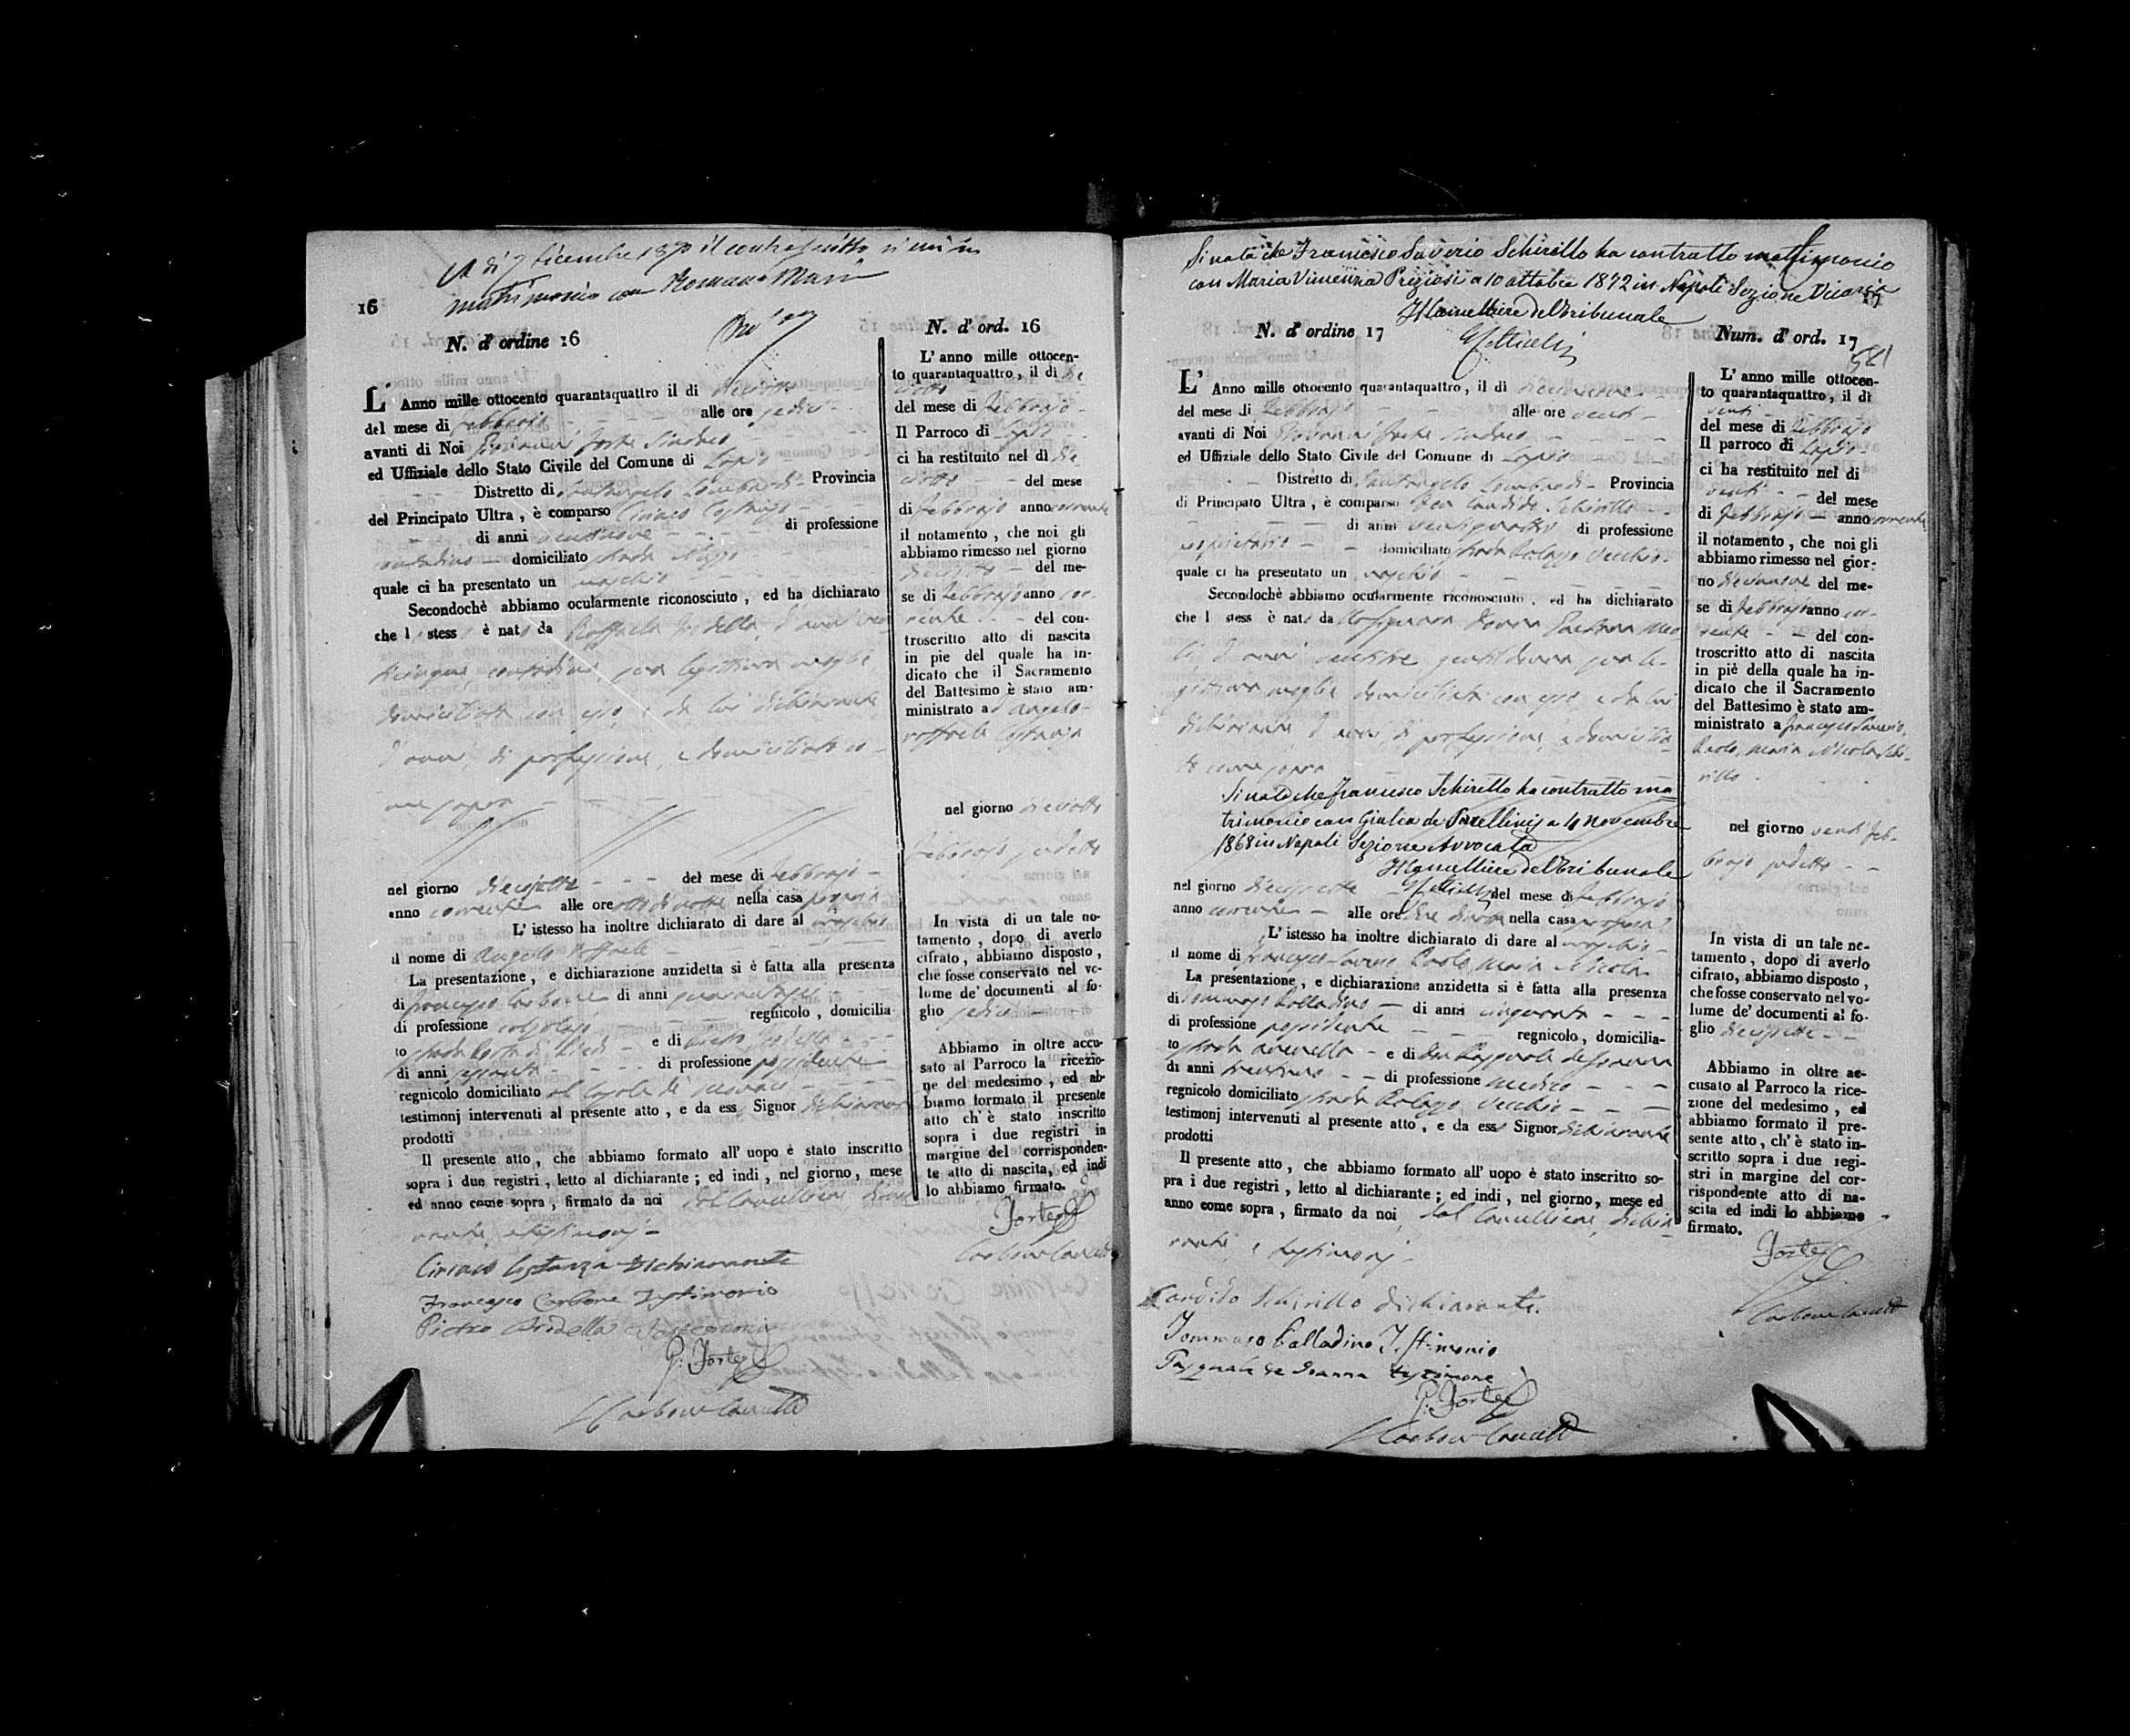 A dì 7 Dicembre 1870 il contrascritto si unì in
matrimonio con Romano Maria
16
N. d' ordine 16
L' Anno mille ottocento quarantaquattro il dì dieciotto
del mese di febbrajo alle ore sedici
avanti di Noi Giovanni Forte Sindaco
ed Uffiziale dello Stato Civile del Comune di Lapio
Distretto di Santangelo Lombardi Provincia
del Principato Ultra, è comparso Ciriaco Costanza
di anni ventinove di professione
contadino domiciliato strada
quale ci ha presentato un maschio
Secondochè abbiamo ocularmente riconosciuto, ed ha dichiarato
che l stess è nat da Raffaela d'anni
contadina sua legittima moglie
domiciliata con esso e da lui dichiarante
d'anni, di professione, e domiciliato co-
me sopra
nel giorno diecisette del mese di febbrajo
anno corrente alle ore otto di notte nella casa propria
L' istesso ha inoltre dichiarato di dare al maschio
il nome di Angelo Raffaele
La presentazione, e dichiarazione anzidetta si è fatta alla presenza
di Francesco Carbone di anni
di professione regnicolo, domicilia-
to strada Porta di e di Pietro
di anni sessanta di professione possidente
regnicolo domiciliato al
testimonj intervenuti al presente atto, e da ess Signor dichiarante
prodotti
Il presente atto, che abbiamo formato all' uopo è stato inscritto
sopra i due registri, letto al dichiarante; ed indi, nel giorno, mese
ed anno come sopra, firmato da noi dal Cancelliere dichia-
rante e testimonj
Ciriaco Costanza dichiarante
Francesco Carbone Testimonio
Pietro
G. Forte
Carbone
N. d' ord. 16
L' anno mille ottocen-
to quarantaquattro, il dì die
ciotto
del mese di febbrajo
Il Parroco di Lapio
ci ha restituito nel dì die
ciotto del mese
di febbrajo anno corrente
il notamento, che noi gli
abbiamo rimesso nel giorno
dieciotto del me-
se di febbrajo anno cor-
rente del con-
troscritto atto di nascita
in pie del quale ha in-
dicato che il Sacramento
del Battesimo è stato am-
ministrato a Angelo
Raffaele Costanza
nel giorno dieciotto
febbrajo sudetto
In vista di un tale no-
tamento, dopo di averlo
cifrato, abbiamo disposto,
che fosse conservato nel vo-
lume de' documenti al fo-
glio sedici
Abbiamo in oltre accu-
sato al Parroco la ricezio-
ne del medesimo, ed ab-
biamo formato il presente
atto ch' è stato inscritto
sopra i due registri in
margine del corrisponden-
te atto di nascita, ed indi
lo abbiamo firmato.
Forte
Carbone
Si nota che Francesco Saverio Schirillo ha contratto matrimonio
con Maria Vincenza Preziosi a 10 ottobre 1872 in Napoli Sezione Vicaria
Il Cancelliere del Tribunale
17
N. d' ordine 17
L' Anno mille ottocento quarantaquattro, il dì diecinnove
del mese di febbrajo alle ore venti
avanti di Noi Giovanni Forte Sindaco
ed Uffiziale dello Stato Civile del Comune di Lapio
Distretto di Santangelo Lombardi Provincia
di Principato Ultra, è comparso Don Candido Schirillo
di anni ventiquattro di professione
proprietario domiciliato strada Palazzo Vecchio
quale ci ha presentato un maschio
Secondochè abbiamo ocularmente riconosciuto, ed ha dichiarato
che l stess è nat da
d'anni ventitre gentildonna sua le-
gittima moglie domiciliata con esso e da lui
dichiarante d'anni, di professione, e domicilia-
to come sopra
Si nota che Francesco Schirillo ha contratto ma
trimonio con Giulia de a 4 novembre
1868 in Napoli Sezione Avvocata
Il Cancelliere del Tribunale
nel giorno diecisette del mese di febbrajo
anno corrente alle ore nella casa propria
L' istesso ha inoltre dichiarato di dare al maschio
il nome di Francesco Saverio Paolo Maria Nicola
La presentazione, e dichiarazione anzidetta si è fatta alla presenza
di Tommaso Palladino di anni cinquanta
di professione possidente regnicolo, domicilia-
to strada e di Don Pasquale de Joanna
di anni di professione medico
regnicolo domiciliato strada Palazzo Vecchio
testimonj intervenuti al presente atto, e da ess Signor dichiarante
prodotti
Il presente atto, che abbiamo formato all' uopo è stato inscritto so-
pra i due registri, letto al dichiarante; ed indi, nel giorno, mese ed
anno come sopra, firmato da noi, dal Cancelliere, dichia
rante e testimonj
Candido Schirillo dichiarante
Tommaso Palladino Testimonio
Pasquale de Joanna testimone
G. Forte
Carbone
Num. d' ord. 17
L' anno mille ottocen-
to quarantaquattro, il dì
venti
del mese di febbrajo
Il parroco di Lapio
ci ha restituito nel di
venti del mese
di febbrajo anno corrente
il notamento, che noi gli
abbiamo rimesso nel gior-
no diecinnove del me-
se di febbrajo anno cor-
rente del con-
troscritto atto di nascita
in piè della quale ha in-
dicato che il Sacramento
del Battesimo è stato am-
ministrato a Francesco Saverio,
Paolo, Maria Nicola Schi-
rillo
nel giorno venti feb-
brajo sudetto
In vista di un tale no-
tamento, dopo di averlo
cifrato, abbiamo disposto,
che fosse conservato nel vo-
lume de' documenti al fo-
glio diecisette
Abbiamo in oltre ac-
cusato al Parroco la rice-
zione del medesimo, ed
abbiamo formato il pre-
sente atto, ch' è stato in-
scritto sopra i due regi-
stri in margine del cor-
rispondente atto di na-
scita ed indi lo abbiamo
firmato.
Forte
Carbone